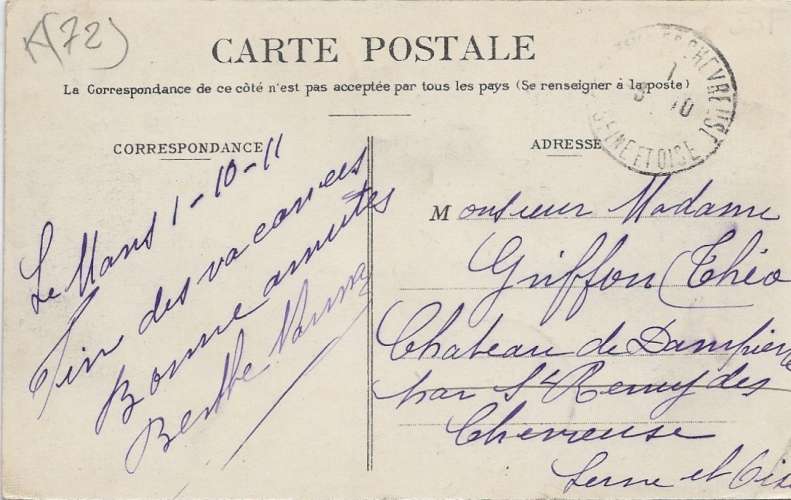 (72)
CARTE POSTALE
La Correspondance de ce côté n'est pas acceptée par tous les pays (Se renseigner à la poste)
CORRESPONDANCE
Le Mans 1-10-11
Fin des vacances
Bonne amitiés
Berthe
ADRESSE
CHEVREUSE
SEINE ET OISE
Monsieur Madame
Griffon (Théo
Chateau de Dampierre
par St Remy des
Chevreuse
Seine et Oise